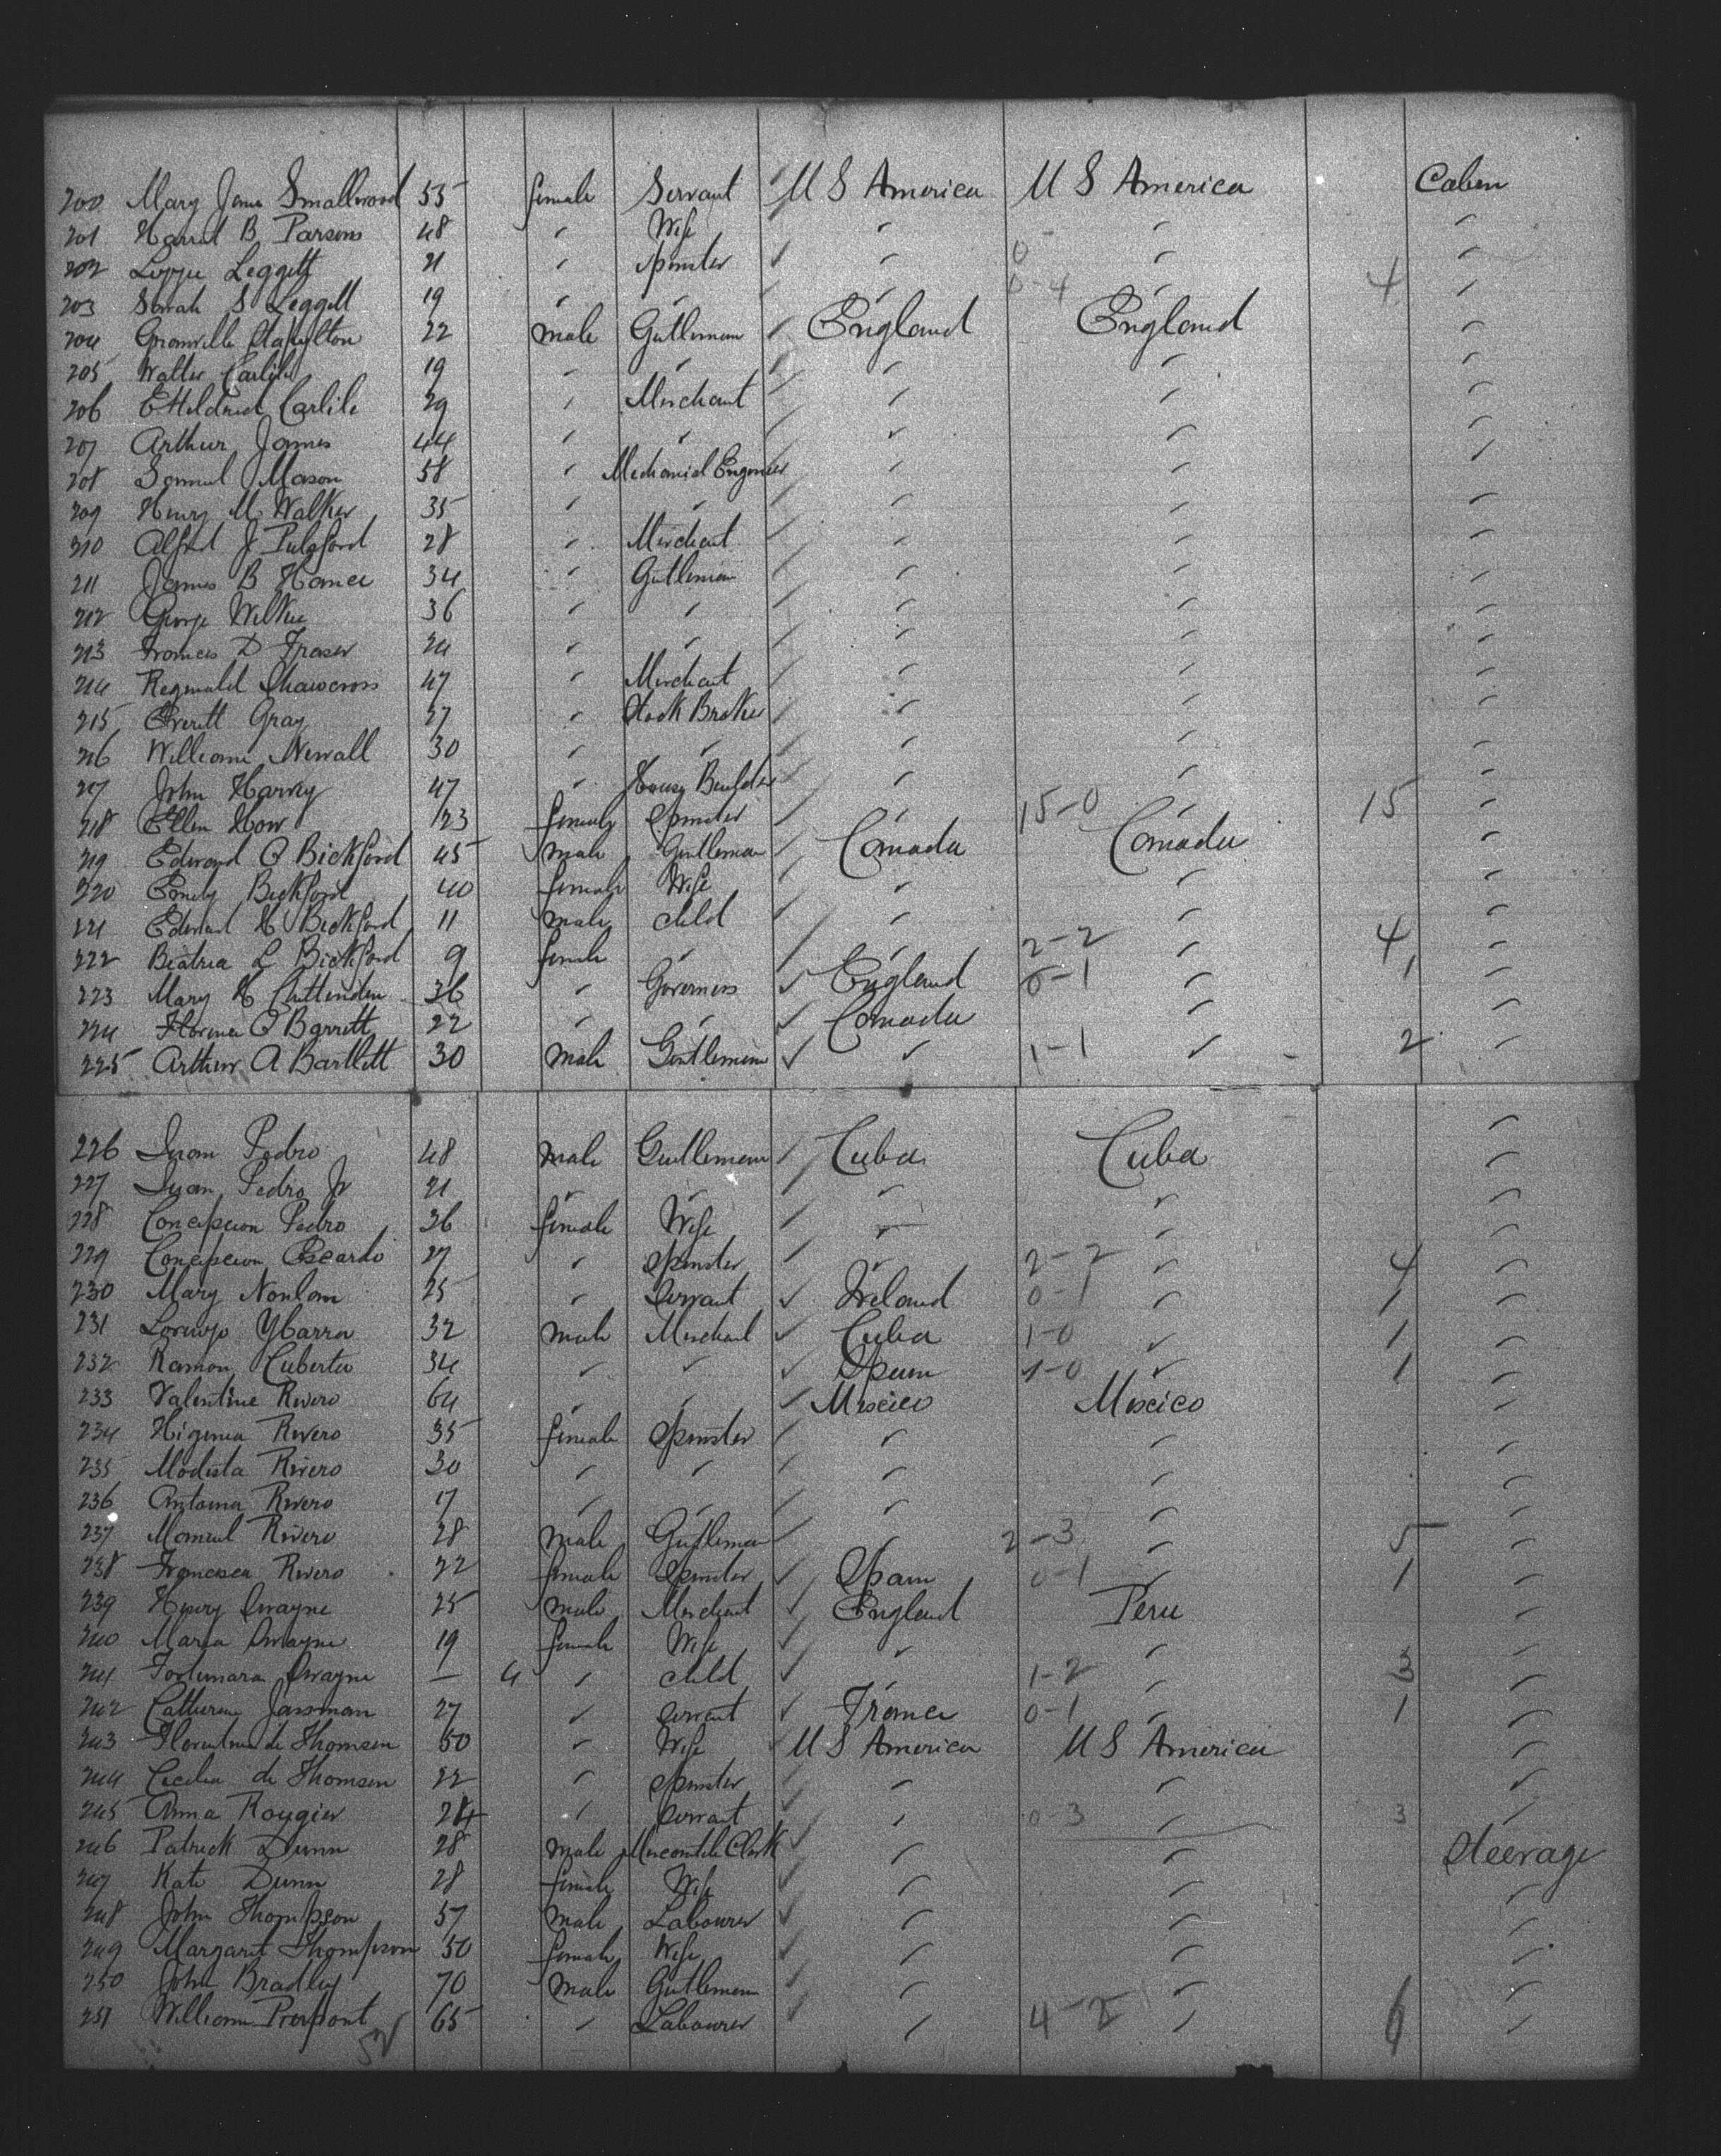 200 Mary Jane Smallwood 55 female Servant U S America U S America Cabin
201 Harriet B Parsons 48 " Wife " " "
202 Lizzie Leggett 21 " Spinster " 0 " "
203 Sarah S Leggett 19 " " " 0-4 " 4 "
204 Granville Stapylton 22 male Gentleman England England "
205 Walter Carlile 19 " " " " "
206 Etheldred Carlile 29 " Merchant " " "
207 Arthur James 44 " " " " "
208 Samuel Mason 58 " Mechanical Engineer " " "
209 Henry M Walker 35 " " " " "
210 Alfred J Pulsford 28 " Merchant " " "
211 James B Hance 34 " Gentleman " " "
212 George Wilkie 36 " " " " "
213 Frances D Fraser 24 " " " " "
214 Reginald Shawcross 47 " Merchant " " "
215 Everett Gray 27 " Stock Broker " " "
216 William Newall 30 " " " " "
217 John Harvey 47 " House Builder " " "
218 Ellen How 23 female Spinster 15-0 " 15 "
219 Edward O Bickford 45 male Gentleman Canada Canada "
220 Emily Bickford 40 female Wife " " "
221 Edward H Bickford 11 male child " " "
222 Beatrice L Bickford 9 female " " 2-2 " 4 "
223 Mary H Chittenden 36 " Governess England 0-1 " 1 "
224 Florence O Barrett 22 " " Canada " "
225 Arthur A Bartlett 30 male Gentleman " 1-1 " 2 "
226 Juan Pedro 48 male Gentleman Cuba Cuba "
227 Juan Pedro Jr 21 " " " " "
228 Concepcion Pedro 36 female Wife " " "
229 Concepcion 27 " Spinster " 2-2 " 4 "
230 Mary Nonlan 25 " Servant Ireland 0-1 " 1 "
231 Ybarra 32 male Merchant Cuba 1-0 " 1 "
232 Ramon Cuberta 34 " " Spain 1-0 " 1 "
233 Valentine Rivero 64 " " Mexico Mexico "
234 Higinia Rivero 35 female Spinster " " "
235 Modesta Rivero 30 " " " " "
236 Antonia Rivero 17 " " " " "
237 Manuel Rivero 28 male Gentleman " 2-3 " 5 "
238 Francisca Rivero 22 female Spinster Spain 0-1 " 1 "
239 Henry Swayne 25 male Merchant England Peru "
240 Maria Swayne 19 female Wife " " "
241 Swayne — 4 " child 1-2 " 3 "
242 Catherine Jassman 27 " Servant France 0-1 " 1 "
243 de Thomsen 50 " Wife U S America U S America "
244 Cecilia de Thomsen 22 " Spinster " " "
245 Anna Rougier 24 " Servant " 0-3 " 3 "
246 Patrick Dunn 28 male Mercantile Clerk " " Steerage
247 Kate Dunn 28 female Wife " " "
248 John Thompson 57 male Labourer " " "
249 Margaret Thompson 50 female Wife " " "
250 John Bradley 70 male Gentleman " " "
251 William Pierpont 65 " Labourer " 4-2 " 6 "
52